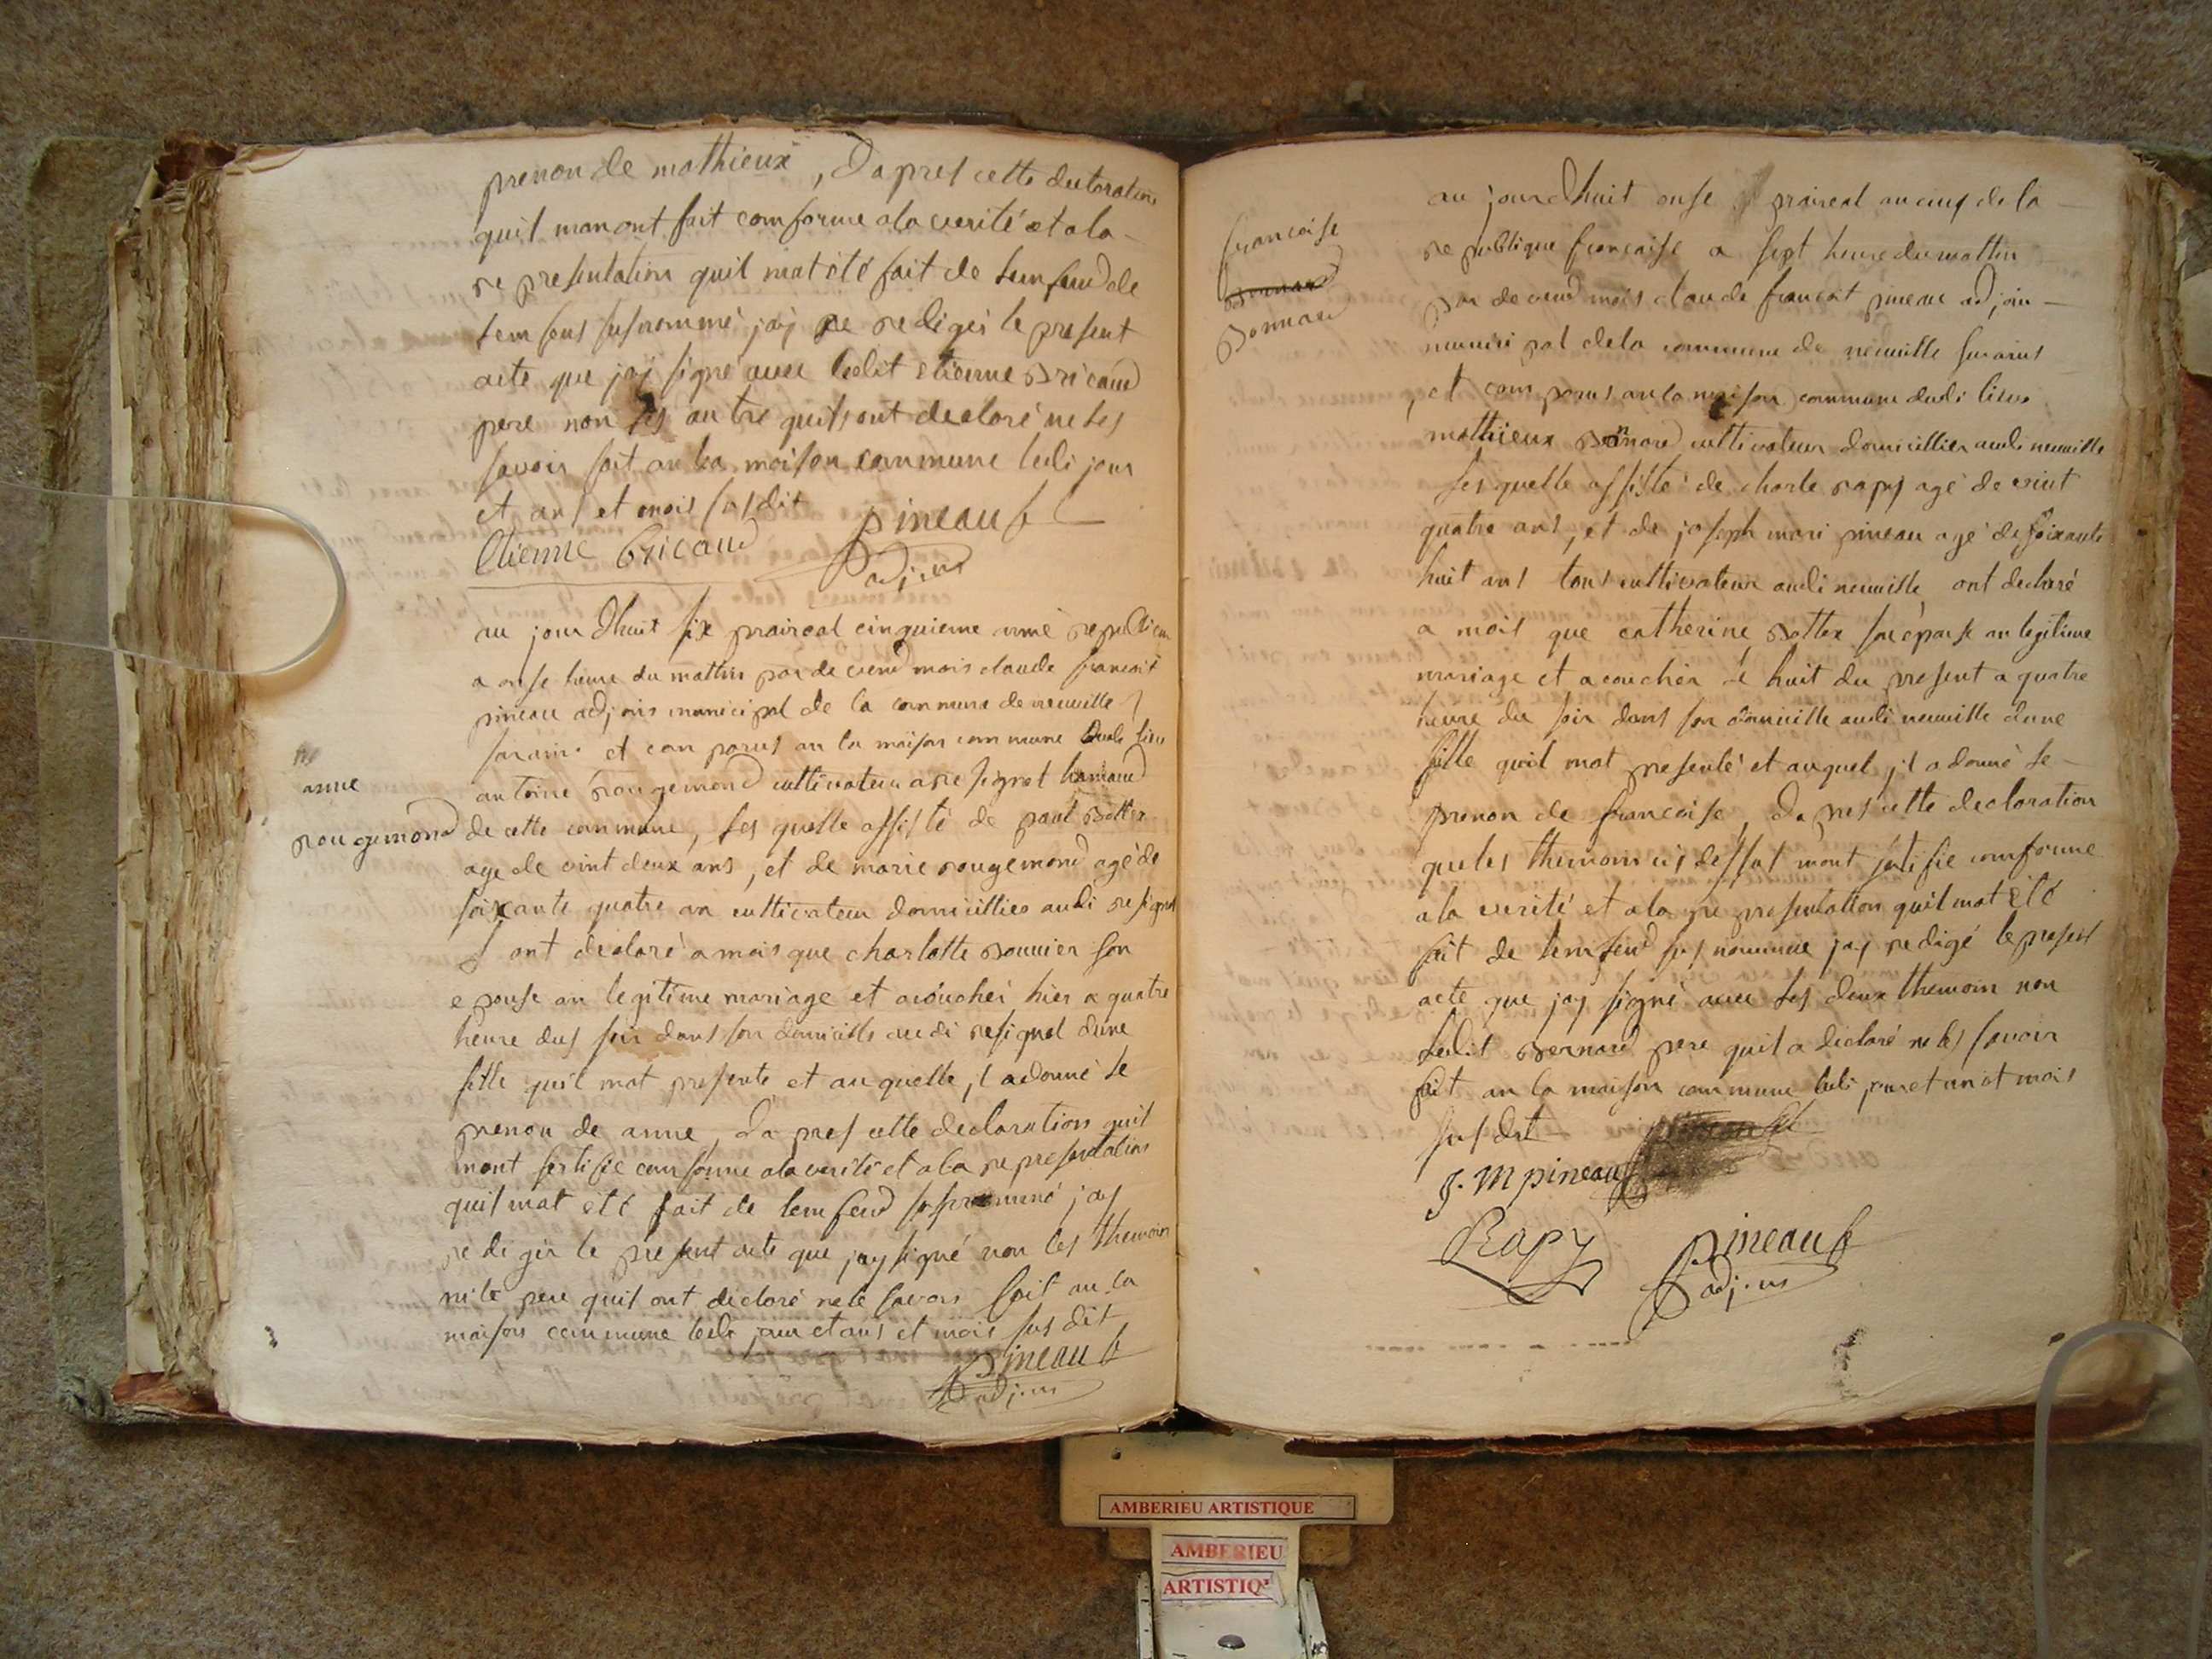 prenon de mathieux, dapres cette declaration
quil manont fait comforme ala verité et ala
representation quil mat été fait de lemfend de
lem fens susnommé jaj re rediger le present
acte que jaj signé avec ledit etienne Bricaud
pere non les autre quils ont declaré ne les
savoir fait an la maison commune ledi jour
et ans et mois susdit
Etienne Bricaud pineau f
adjoins
au jour dhuit six praireal cinquieme anné republicen
a onse heure du mathin par de vend mois claude francoit
pineau adjoins municipal de la commune de neuville
surains et comparus an la maison commune dudi lieu
anne
antoine rougemond cultivateur a resignet hamaud
rougemond
de cette commune, les quelle assisté de paul Bottex
age de vint deux ans, et de marie rougemond agé de
soixante quatre an cultivateur domicillies audi resignel
ont declaré a mois que charlotte Bouvier son
epouse an legitime mariage et acouchéi hier a quatre
heure dus soir dans son domicille audi resignel dune
fille quil mat presente et au quelle jl a donné le
prenon de anne, da pres cette declaration quil
mont sertifie comforme ala verité et ala representation
quil mat été fait de lemfend susnommé jay
rediger le present acte que jay signé non les themoin
ni le pere quil ont declaré ne le savoir fait an la
maison commune ledi jour et ans et mois sus dit
pineau f
adjoins
francoise
Bonnard
au jourdhuit onse praireal an cinq de la
republique francaise a sept heure du mattin
par de vend mois claude francoit pineau adjoin
municipal dela commune de neuville surains
, et comparus an la maison commune dudi lieux
mathieux Bonnard cultivateur domicillier audi neuville
les quelle assisté de charle rapy agé de vint
quatre ans, et de joseph mari pineau agé de soixante
huit ans tous cultivateur audi neuville, ont declaré
a mois que catherine Bottex son epouse an legitime
mariage et acouchér le huit du present a quatre
heure du soir dans son domicille audi neuville dune
fille quil mat presenté et auquel jl a donné le
prenon de francoise, da pres cette declaration
que les themoin cis dessut mont sertifie comforme
ala verité et ala representation quil mat été
fait de lemfend susnommé jay redigé le present
acte que jay signé avec les deux themoin non
ledit Bernard pere quil a declaré ne les savoir
fait an la maison commune ledi jour et an et mois
sus dit
J. M pineau
Rapy pineau f
adjoins
AMBERIEU ARTISTIQUE
AMBERIEU
ARTISTIQ